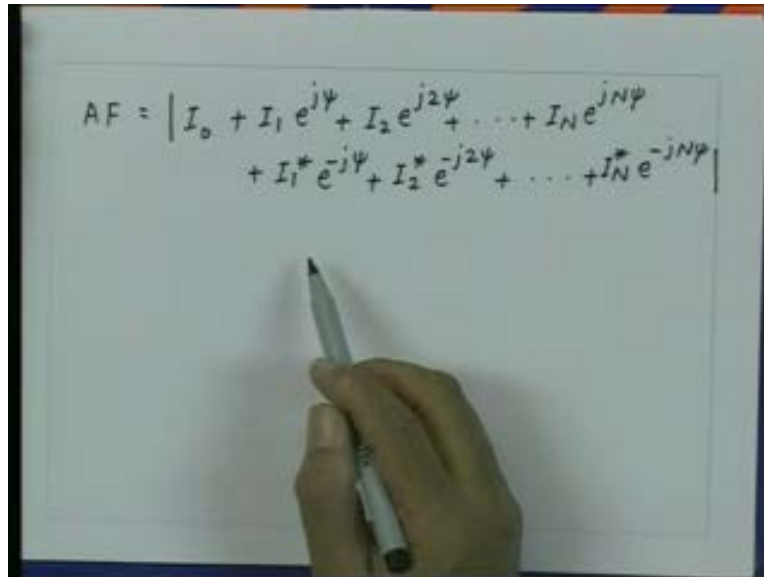 AF = | I₀ + I₁ e^{jψ} + I₂ e^{j2ψ} + . . . + I_N e^{jNψ}
+ I₁* e^{-jψ} + I₂* e^{-j2ψ} + . . . . + I_N* e^{-jNψ} |